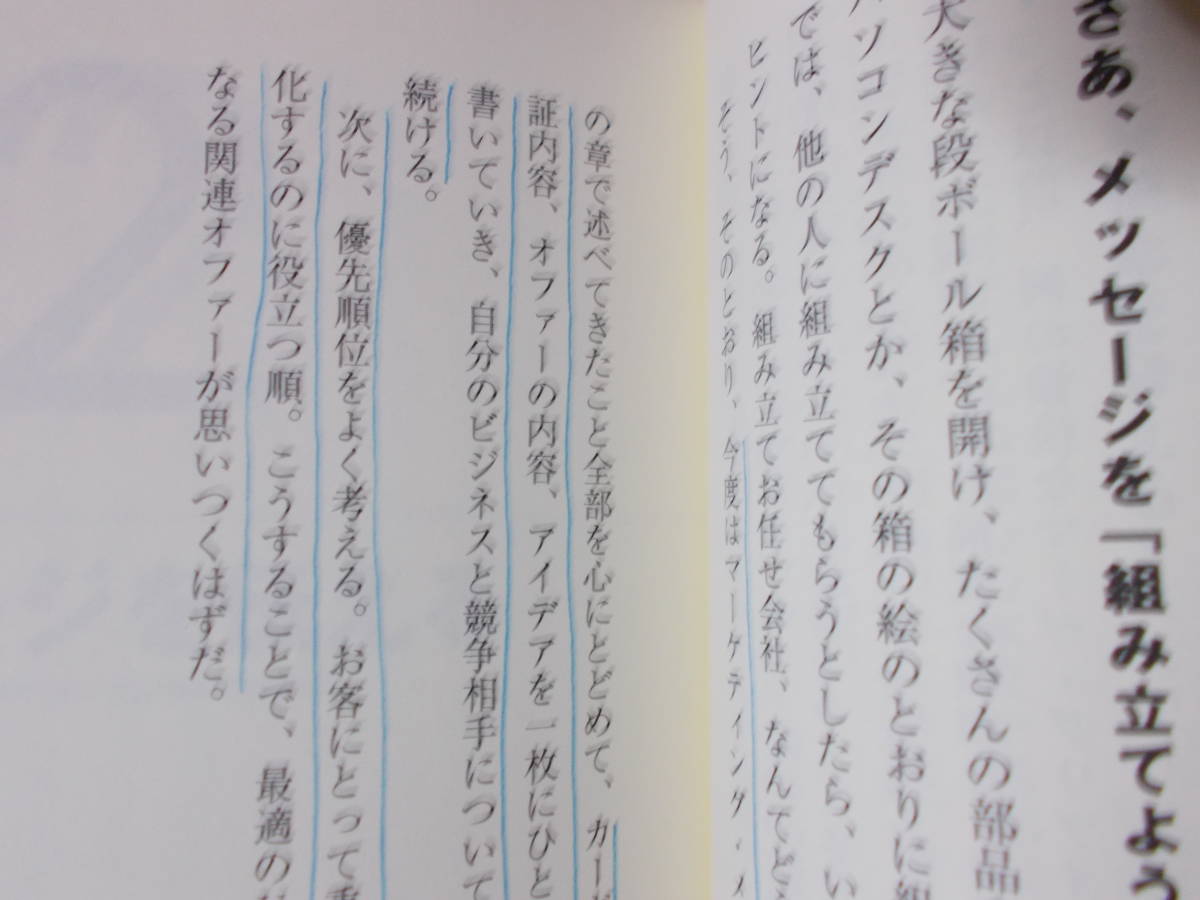 さあ、メッセージを「組み立てよう
大きな段ボール箱を開け、たくさんの部品
パソコンデスクとか、その箱の絵のとおりに組
では、他の人に組み立ててもらうとしたら、い
ヒントになる。組み立てお任せ会社、なんてどう
そう、そのとおり、今度はマーケティング・メ
の章で述べてきたこと全部を心にとどめて、カード
証内容、オファーの内容、アイデアを一枚にひと
書いていき、自分のビジネスと競争相手について
続ける。
次に、優先順位をよく考える。お客にとって重
化するのに役立つ順。こうすることで、最適の
なる関連オファーが思いつくはずだ。